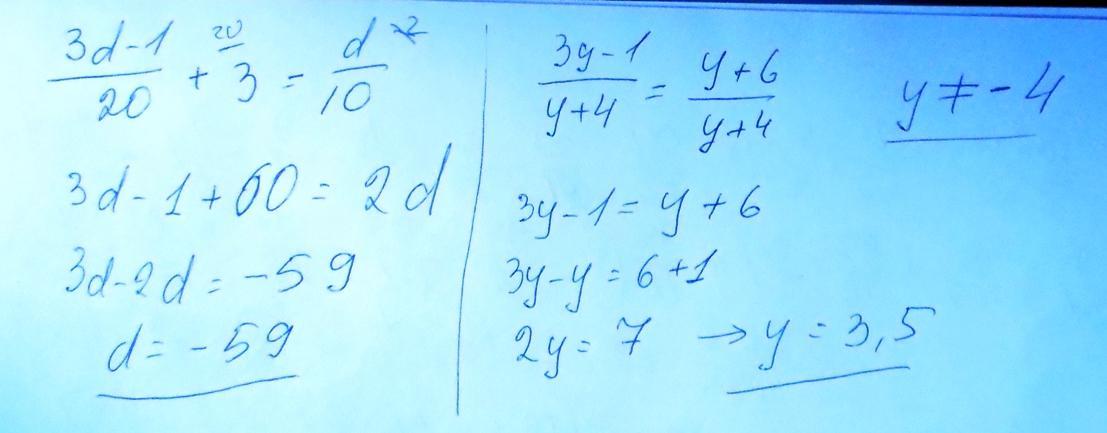 (3d-1)/20 + 3 = d/10
20
2
3d-1+60=2d
3d-2d=-59
d=-59
(3y-1)/(y+4) = (y+6)/(y+4)
y≠-4
3y-1=y+6
3y-y=6+1
2y=7 → y=3,5